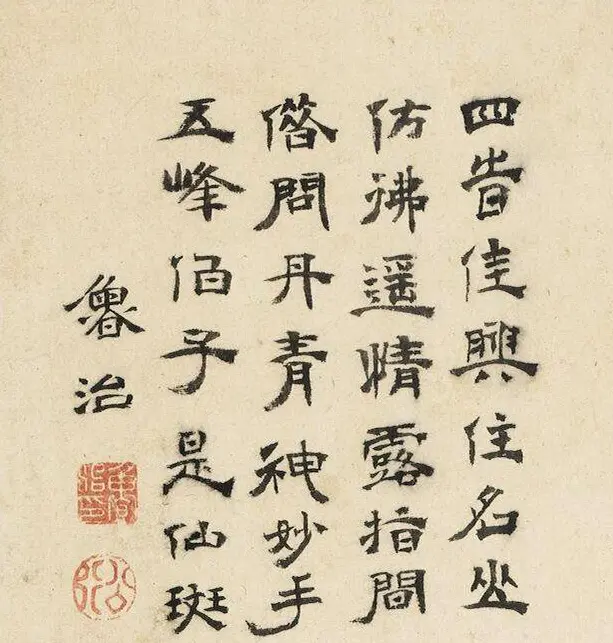 四旹佳興住名山
仿彿遥情露指間
借問丹青神妙手
五峰伯子是仙斑
魯治